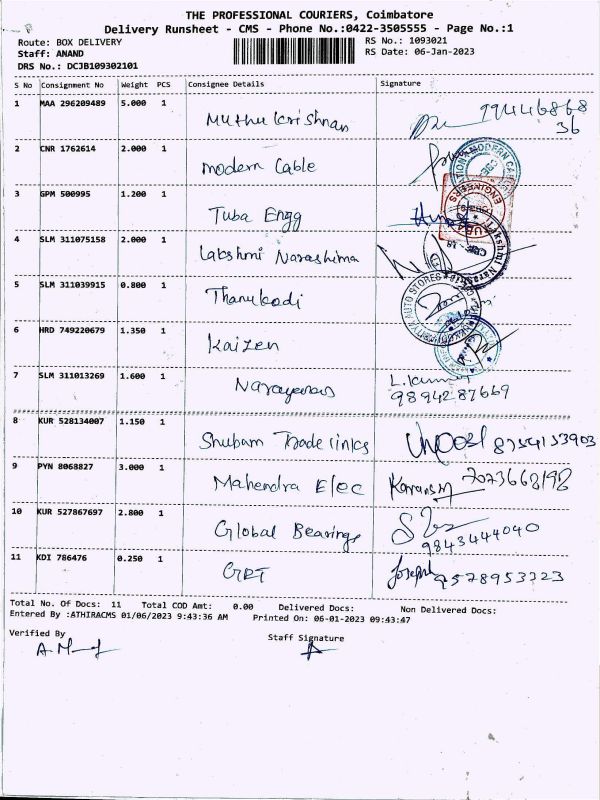 THE PROFESSIONAL COURIERS, Coimbatore
Delivery Runsheet - CMS - Phone No.:0422-3505555 - Page No.:1
Route: BOX DELIVERY
RS No.: 1093021
Staff: ANAND
RS Date: 06-Jan-2023
DRS No.: DCJB109302101
S No Consignment No Weight PCS Consignee Details Signature
1 MAA 296209489 5.000 1 Muthukrishnan
2 CNR 1762614 2.000 1 Modern Cable
3 GPM 500995 1.200 1 Tuba Engg
4 SLM 311075158 2.000 1 Lakshmi Narashima
5 SLM 311039915 0.800 1 Thanukodi
6 HRD 749220679 1.350 1 Kaizen
7 SLM 311013269 1.600 1 Narayanan L. Kumar
9894287669
8 KUR 528134007 1.150 1 Shubam Tradelinks 8754153903
9 PYN 8068827 3.000 1 Mahendra Elec
10 KUR 527867697 2.800 1 Global Bearings
9843444040
11 KDI 786476 0.250 1 GRT Joseph 9578953323
Total No. Of Docs: 11 Total COD Amt: 0.00 Delivered Docs: Non Delivered Docs:
Entered By :ATHIRACMS 01/06/2023 9:43:36 AM Printed On: 06-01-2023 09:43:47
Verified By
Staff Signature